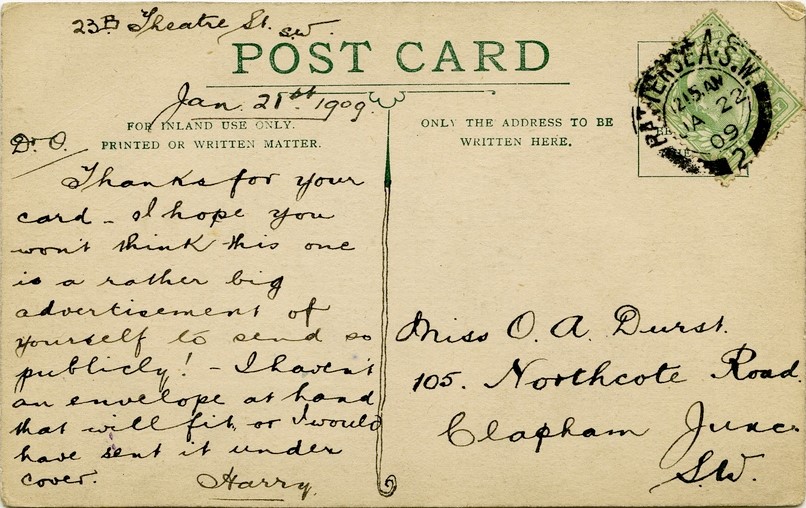 23B Theatre St. S.W.
POST CARD
Jan. 21st 1909.
FOR INLAND USE ONLY.
PRINTED OR WRITTEN MATTER.
D. O.
Thanks for your
card - I hope you
won't think this one
is a rather big
advertisement of
yourself to send so
publicly! - I haven't
an envelope at hand
that will fit, or I would
have sent it under
cover.
Harry.
ONLY THE ADDRESS TO BE
WRITTEN HERE.
BATTERSEA. S.W.
12.15 AM
JA 22
09
2
Miss O. A. Durst.
105. Northcote Road.
Clapham Junc.
S.W.